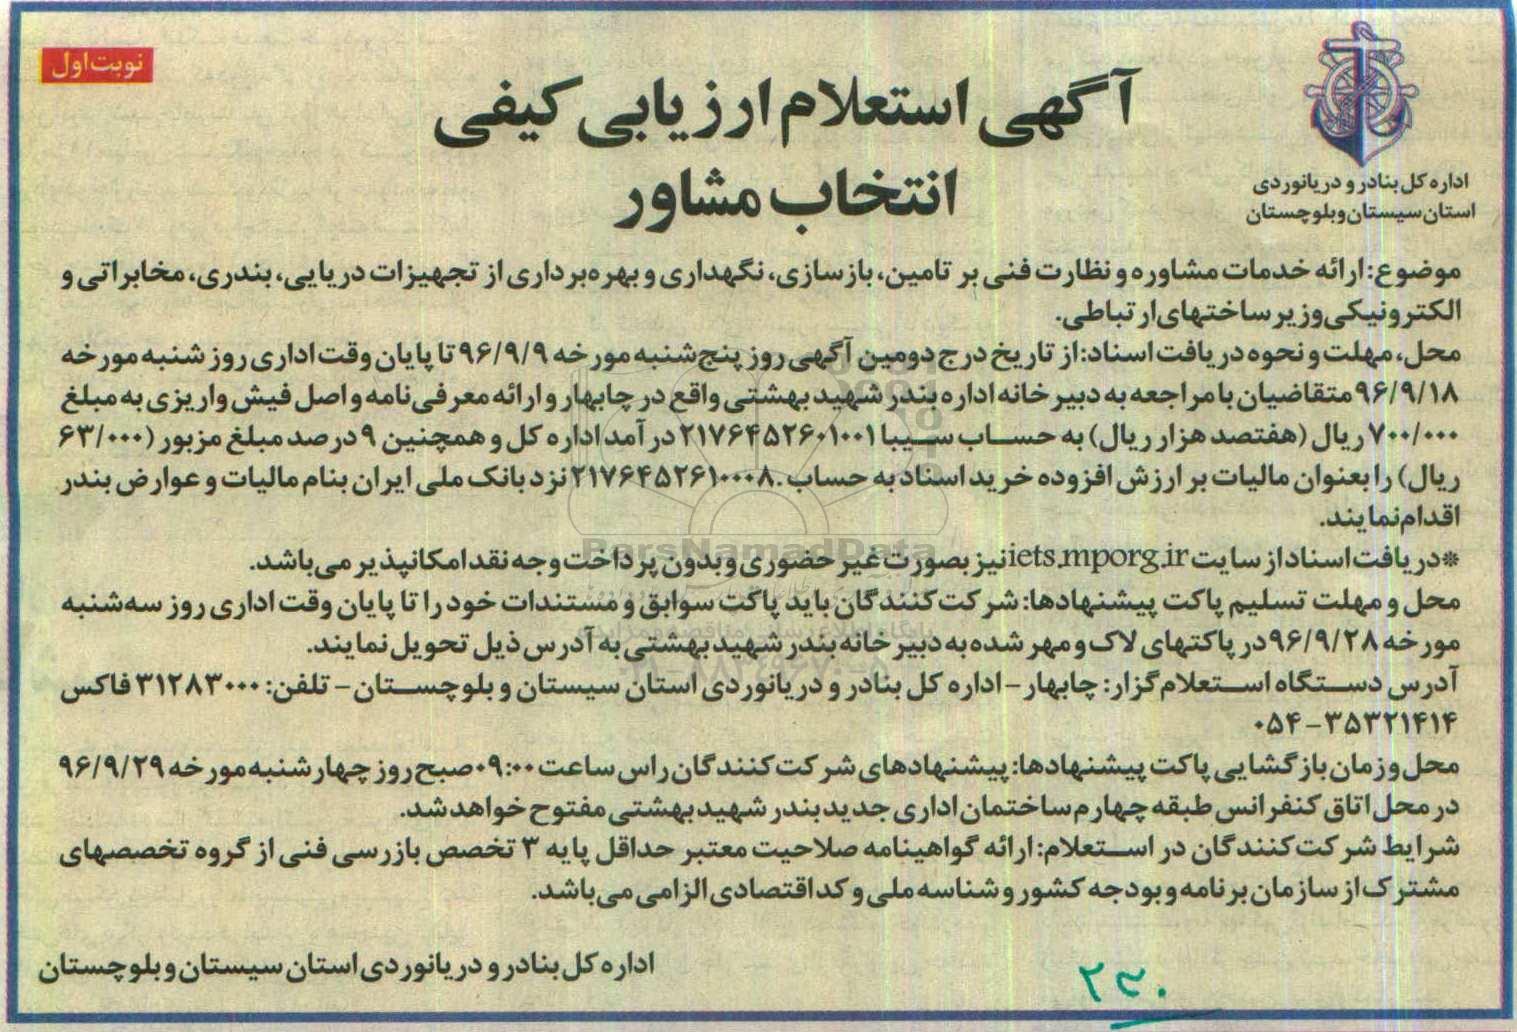 نوبت اول
آگهی استعلام ارزیابی کیفی
انتخاب مشاور
اداره کل بنادر و دریانوردی
استان سیستان و بلوچستان
موضوع: ارائه خدمات مشاوره و نظارت فنی بر تامین، بازسازی، نگهداری و بهره‌برداری از تجهیزات دریایی، بندری، مخابراتی و
الکترونیکی و زیرساختهای ارتباطی.
محل، مهلت و نحوه دریافت اسناد: از تاریخ درج دومین آگهی روز پنج‌شنبه مورخه ۹۶/۹/۹ تا پایان وقت اداری روز شنبه مورخه
۹۶/۹/۱۸ متقاضیان با مراجعه به دبیرخانه اداره بندر شهید بهشتی واقع در چابهار و ارائه معرفی‌نامه و اصل فیش واریزی به مبلغ
۷۰۰/۰۰۰ ریال (هفتصد هزار ریال) به حساب سیبا ۲۱۷۶۴۵۲۶۰۱۰۰۱ درآمد اداره کل و همچنین ۹ درصد مبلغ مزبور (۶۳/۰۰۰
ریال) را بعنوان مالیات بر ارزش افزوده خرید اسناد به حساب .۲۱۷۶۴۵۲۶۱۰۰۰۸ نزد بانک ملی ایران بنام مالیات و عوارض بندر
اقدام نمایند.
*دریافت اسناد از سایت iets.mporg.ir نیز بصورت غیر حضوری و بدون پرداخت وجه نقد امکانپذیر می‌باشد.
محل و مهلت تسلیم پاکت پیشنهادها: شرکت‌کنندگان باید پاکت سوابق و مستندات خود را تا پایان وقت اداری روز سه‌شنبه
مورخه ۹۶/۹/۲۸ در پاکتهای لاک و مهر شده به دبیرخانه بندر شهید بهشتی به آدرس ذیل تحویل نمایند.
آدرس دستگاه استعلام‌گزار: چابهار – اداره کل بنادر و دریانوردی استان سیستان و بلوچستان – تلفن: ۳۱۲۸۳۰۰۰ فاکس
۰۵۴-۳۵۳۲۱۴۱۴
محل و زمان بازگشایی پاکت پیشنهادها: پیشنهادهای شرکت‌کنندگان راس ساعت ۰۹:۰۰ صبح روز چهارشنبه مورخه ۹۶/۹/۲۹
در محل اتاق کنفرانس طبقه چهارم ساختمان اداری جدید بندر شهید بهشتی مفتوح خواهد شد.
شرایط شرکت‌کنندگان در استعلام: ارائه گواهینامه صلاحیت معتبر حداقل پایه ۳ تخصص بازرسی فنی از گروه تخصصهای
مشترک از سازمان برنامه و بودجه کشور و شناسه ملی و کد اقتصادی الزامی می‌باشد.
اداره کل بنادر و دریانوردی استان سیستان و بلوچستان
ParsNamadData